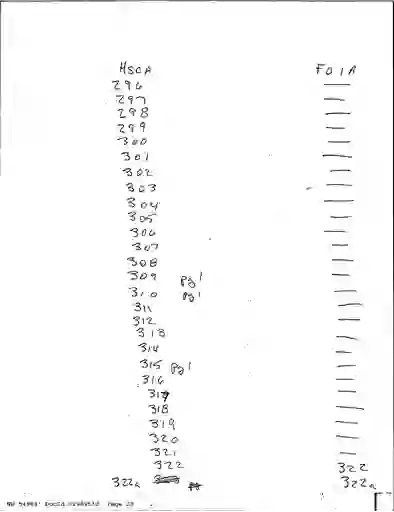 HSCA FOIA
296 —
297 —
298 —
299 —
300 —
301 —
302 —
303 —
304 —
305 —
306 —
307 —
308 —
309 pg 1 —
310 pg 1 —
311 —
312 —
313 —
314 —
315 pg 1 —
316 —
317 —
318 —
319 —
320 —
321 —
322 322
322a 322a
Page 23